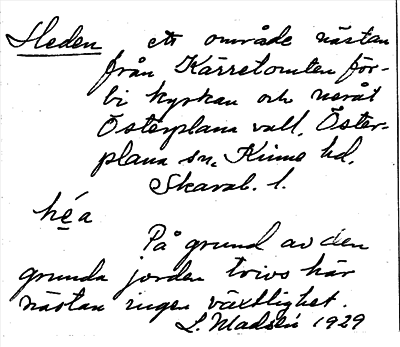 Heden ett område nästan
från Kärretomten för-
bi kyrkan och neråt
Österplana vall, Öster-
plana sn, Kinne hd,
Skarab. l.
héa
På grund av den
grunda jorden trivs här
nästan ingen växtlighet.
L. Madsén 1929